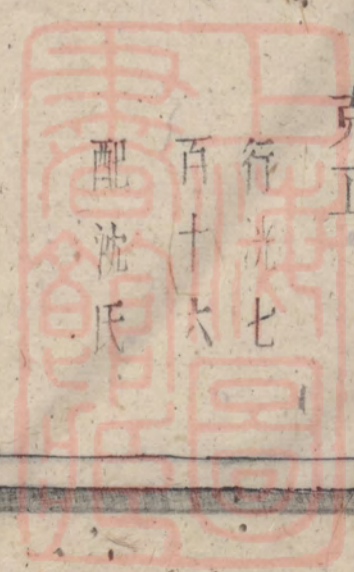 克工
行洸七
百十六
配沈氏
上海圖書館藏